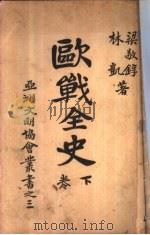 梁敬錞
林凱著
歐戰全史
下卷
亞洲文明協會叢書之三